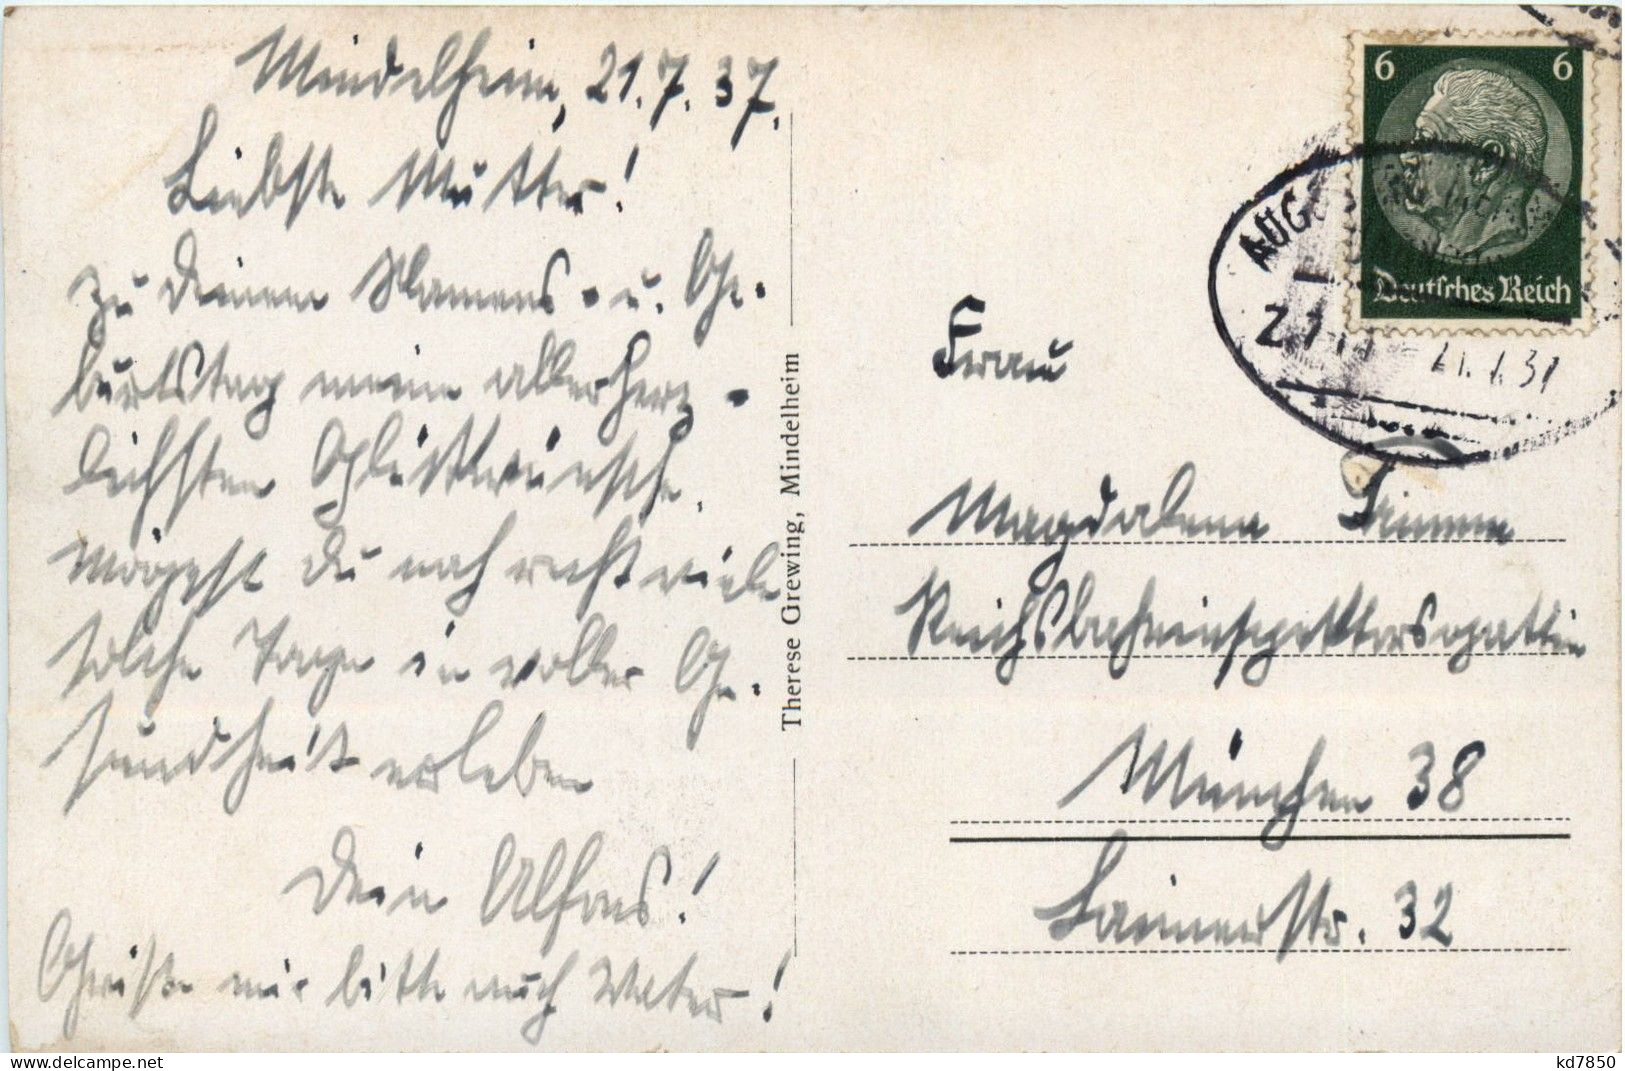 Mindelheim, 21.7.37.
Liebste Mutter!
Zu Deinem Namens- u. Ge-
burtstag meine allerherz-
lichsten Glückwünsche.
Mögest Du noch recht viele
solche Tage in voller Ge-
sundheit erleben
Dein Alfons!
Grüße mir bitte auch Vater!
Therese Grewing, Mindelheim
6 6
Deutsches Reich
AUG
Z
Frau
Magdalena
Reichsbahninspektorsgattin
München 38
Laimerstr. 32
kd7850